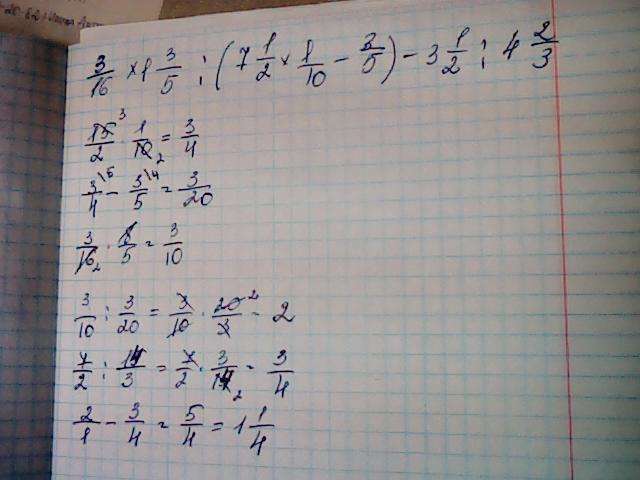 3/16 × 1 3/5 : (7 1/2 × 1/10 − 3/5) − 3 1/2 : 4 2/3
15³/2 · 1/10₂ = 3/4
3\5/4 − 3\4/5 = 3/20
3/16₂ · 8/5 = 3/10
3/10 : 3/20 = 3/10 · 20²/3 = 2
7/2 : 14/3 = 7/2 · 3/14₂ = 3/4
2/1 − 3/4 = 5/4 = 1 1/4